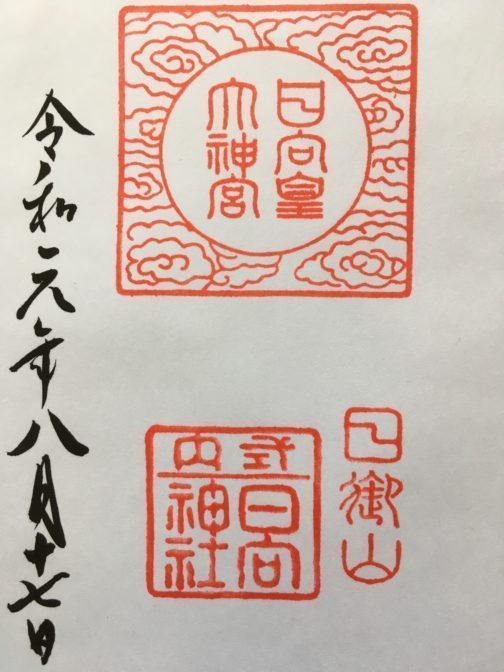 日向皇
大神宮
日御山
式内
日向
神社
令和元年八月十七日